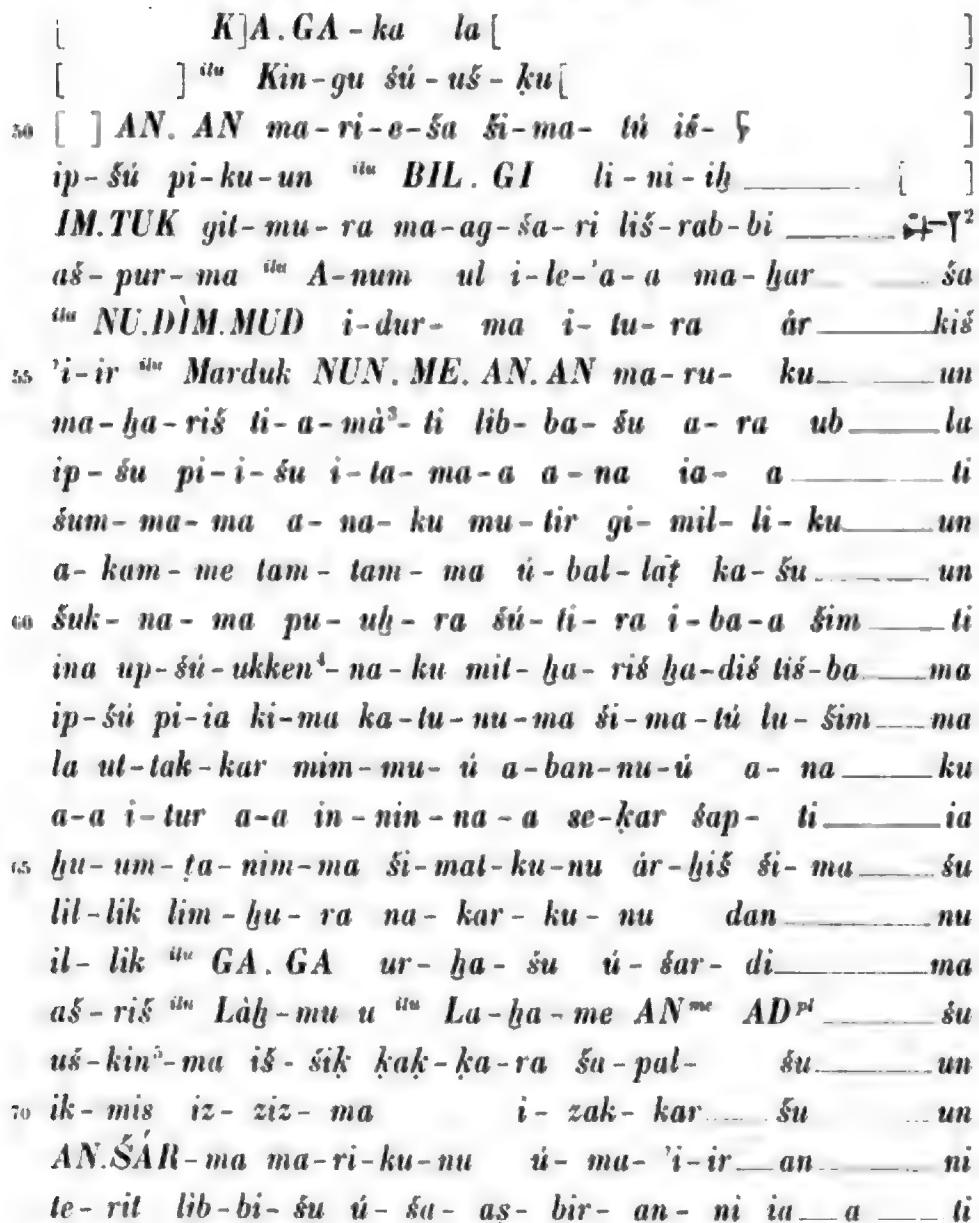 [ K]A.GA-ka la[ ]
[ ] ilu Kin-gu šú-uš-ḳu[ ]
50 [ ] AN.AN ma-ri-e-ša ši-ma-tú iš- ]
ip-šú pi-ku-un ilu BIL.GI li-ni-iḫ [ ]
IM.TUK git-mu-ra ma-ag-ša-ri liš-rab-bi 2
aš-pur-ma ilu A-num ul i-le-'a-a ma-ḫar ša
ilu NU.DÌM.MUD i-dur-ma i-tu-ra ár kiš
55 'i-ir ilu Marduk NUN.ME.AN.AN ma-ru-ku un
ma-ḫa-riš ti-a-mà3-ti lib-ba-šu a-ra ub la
ip-šu pi-i-šu i-ta-ma-a a-na ia-a ti
šum-ma-ma a-na-ku mu-tir gi-mil-li-ku un
a-kam-me tam-tam-ma ú-bal-laṭ ka-šu un
60 šuk-na-ma pu-uḫ-ra šú-ti-ra i-ba-a šim ti
ina up-šú-ukken4-na-ku mit-ḫa-riš ḫa-diš tiš-ba ma
ip-šú pi-ia ki-ma ka-tu-nu-ma ši-ma-tú lu-šim ma
la ut-tak-kar mim-mu-ú a-ban-nu-ú a-na ku
a-a i-tur a-a in-nin-na-a se-ḳar šap-ti ia
65 ḫu-um-ṭa-nim-ma ši-mat-ku-nu ár-ḫiš ši-ma šu
lil-lik lim-ḫu-ra na-kar-ku-nu dan nu
il-lik ilu GA.GA ur-ḫa-šu ú-šar-di ma
aš-riš ilu Làḫ-mu u ilu La-ḫa-me AN me AD pl šu
uš-kin5-ma iš-šiḳ ḳaḳ-ḳa-ra ša-pal-šu un
70 ik-mis iz-ziz-ma i-zak-kar šu un
AN.ŠÁR-ma ma-ri-ku-nu ú-ma-'i-ir an ni
te-rit lib-bi-šu ú-ša-aṣ-bir-an-ni ia a ti